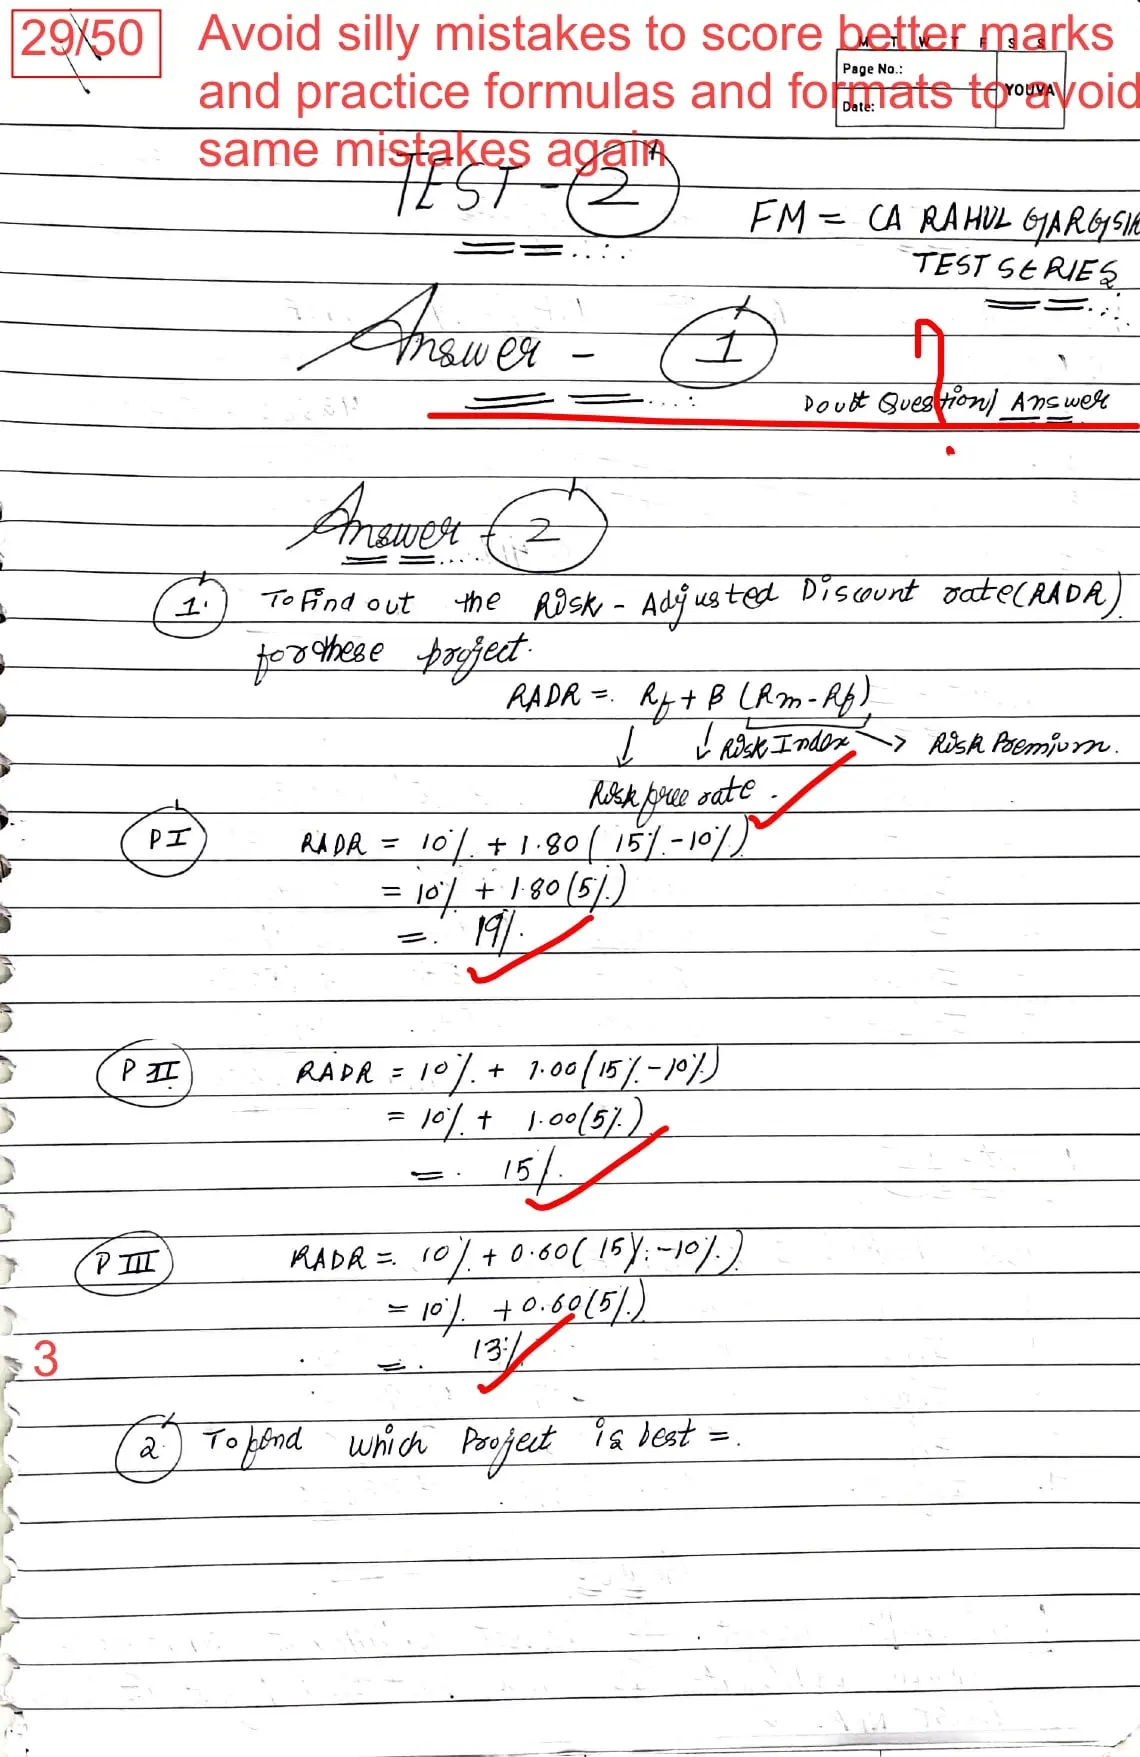 29/50 Avoid silly mistakes to score better marks
and practice formulas and formats to avoid
same mistakes again
M T W T F S S
Page No.:
YOUVA
Date:
TEST - 2
FM = CA RAHUL GARG SIR
TEST SERIES
Answer - 1
?
Doubt Question/ Answer
Answer - 2
1. To Find out the Risk - Adjusted Discount rate (RADR)
for these project.
RADR = Rf + B (Rm - Rf)
Risk Index → Risk Premium.
Risk free rate.
P I RADR = 10% + 1.80 ( 15% - 10%)
= 10% + 1.80 (5%)
= 19%.
P II RADR = 10% + 1.00 (15% - 10%)
= 10% + 1.00 (5%)
= 15%.
P III RADR = 10% + 0.60 ( 15% - 10%)
= 10% + 0.60 (5%)
3
= 13%
2. To find which Project is best =.